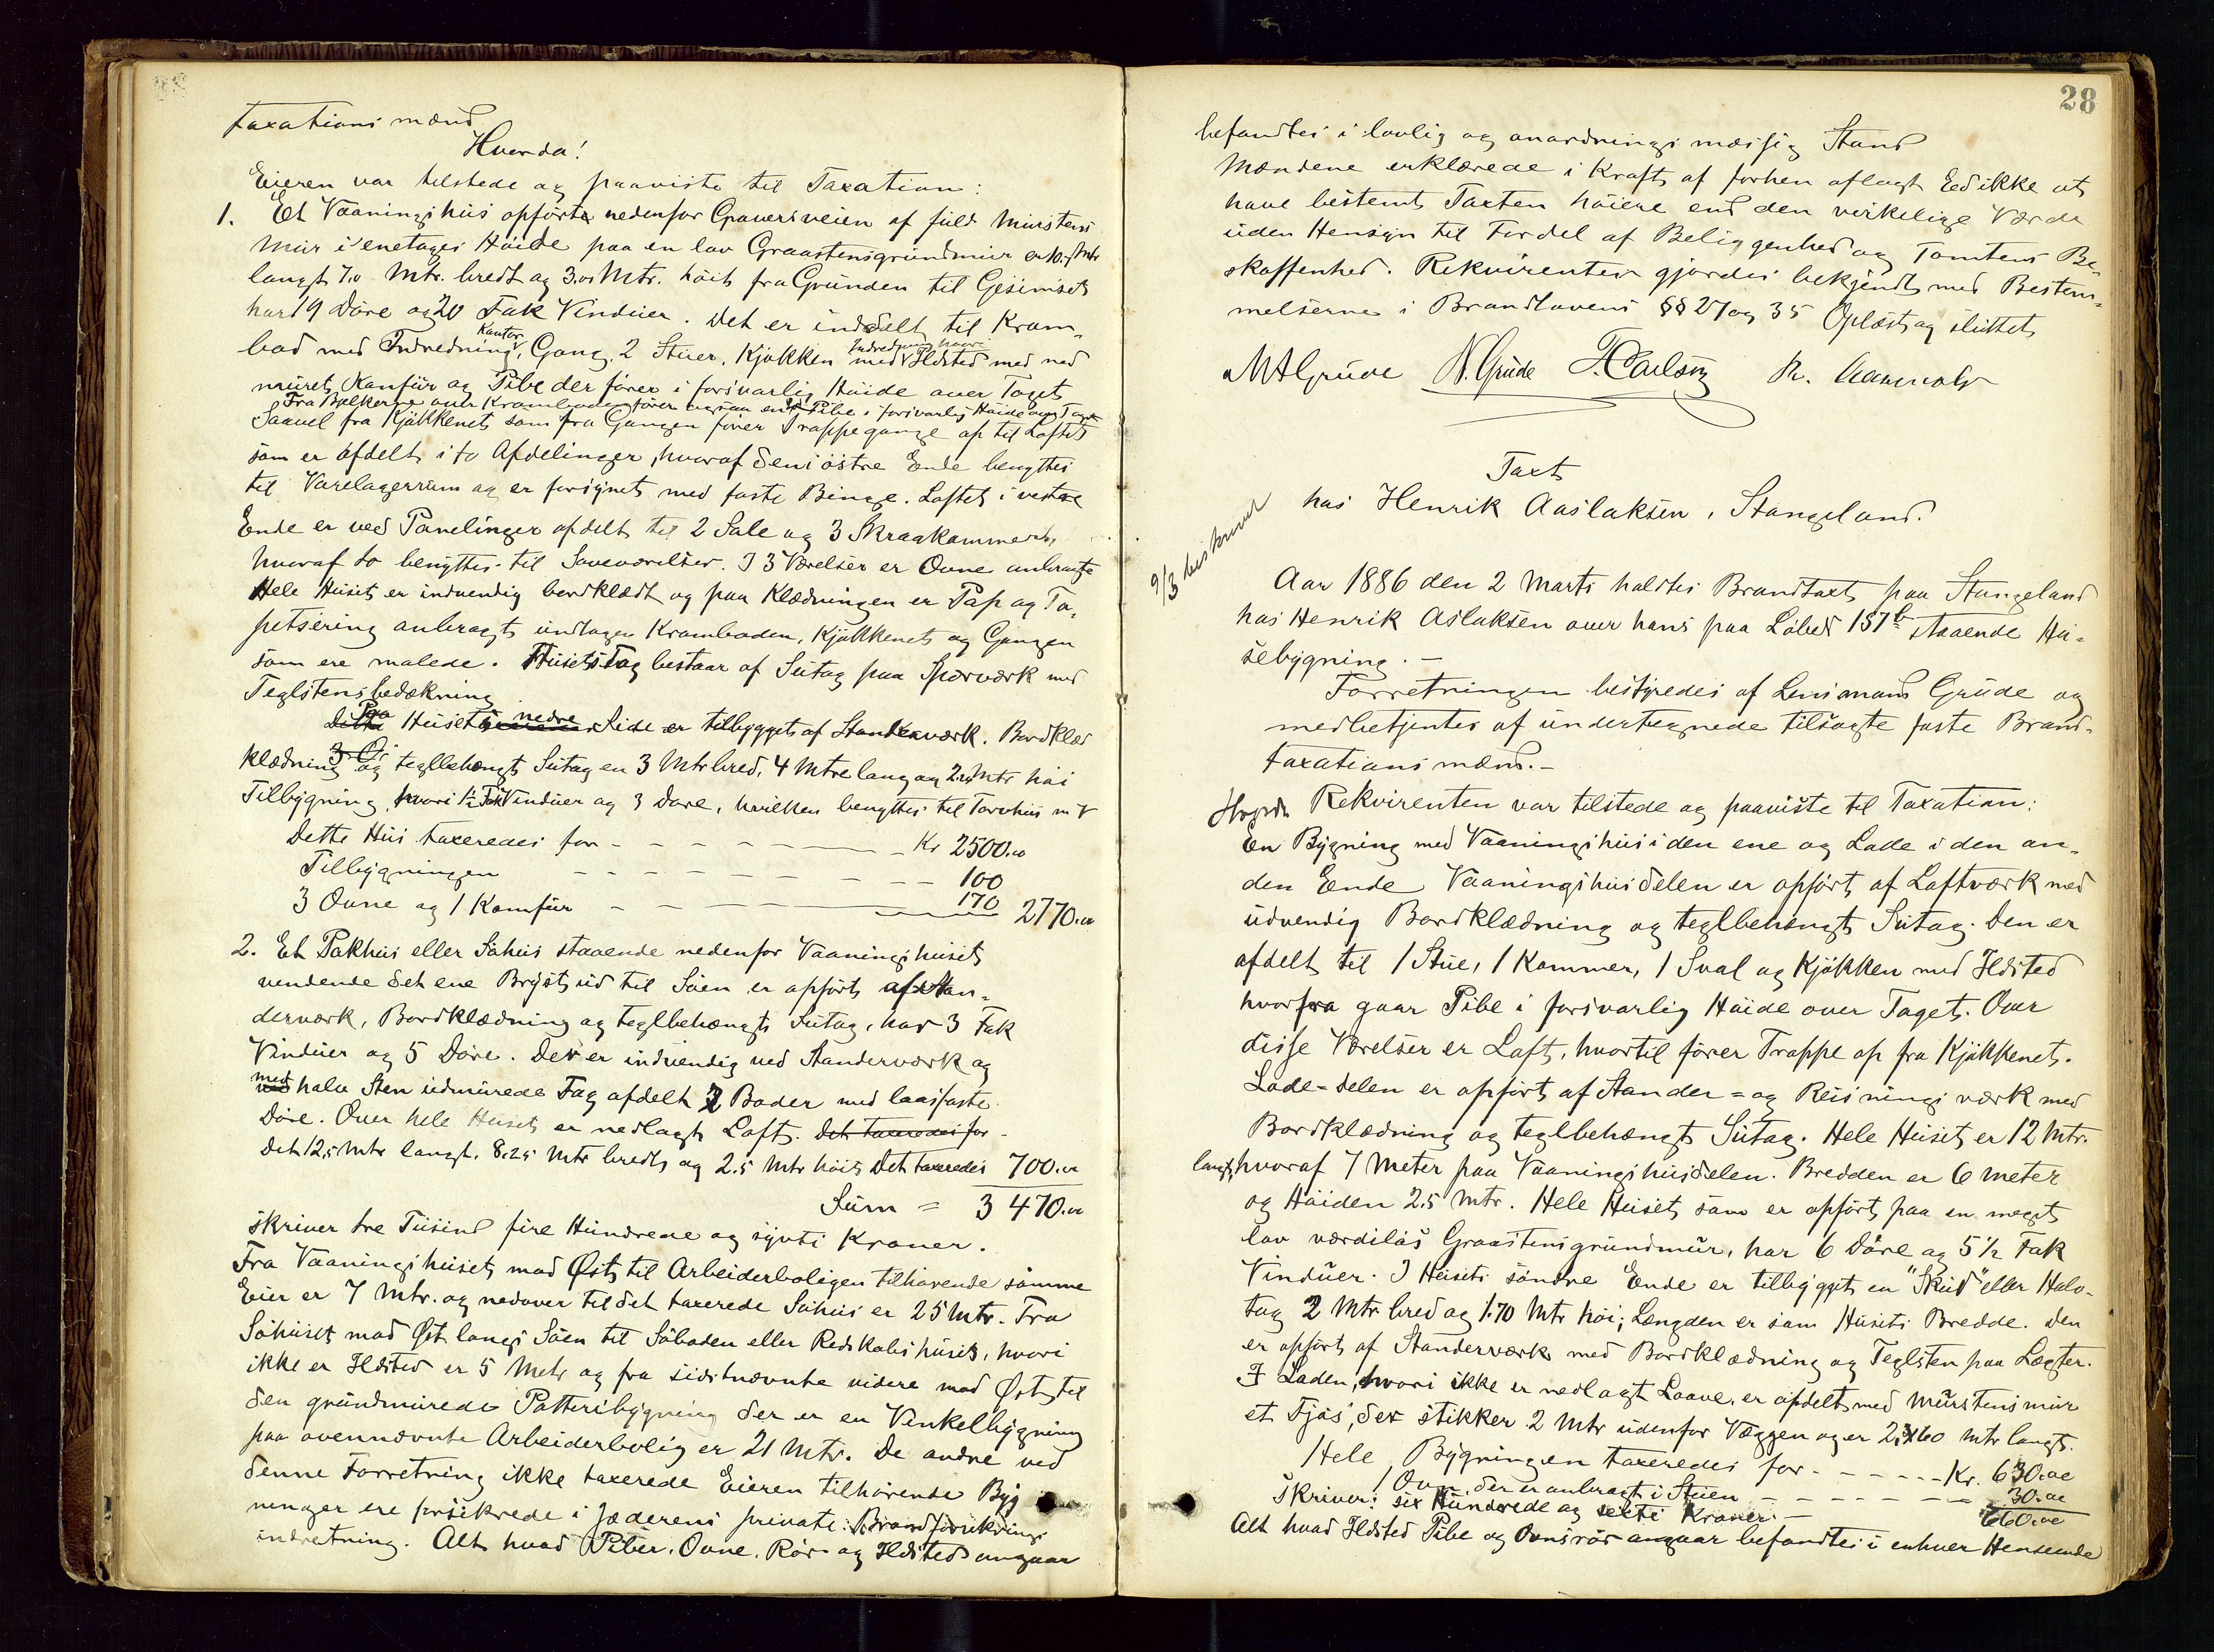 taxationsmænd
Hvorda!
Eieren var tilstede og paaviste til Taxation:
1. Et Vaaningshus opført nedenfor Graversveien af fuld Murstens
Mur i enetages Høide paa en lav Graastensgrundmur er
langt 7.0 Mtr. bredt og 3.0 Mtr. høit fra Grunden til Gesimset
har 19 Døre og 20 Fak Vinduer. Det er inddelt til Kram-
bod med Indredning, Kontor, Gang, 2 Stuer, Kjøkken med Indredning hvori Ildsted med ned
muret Komfur og Pibe der fører i forsvarlig Høide over Taget
Fra Bælkerne over Kramboden fører ogsaa en Pibe i forsvarlig Høide over Taget
Saavel fra Kjøkkenet som fra Gangen fører Trappegange op til Loftet
som er afdelt i to Afdelinger, hvoraf den i østre Ende benyttes
til Varelagerrum og er forsynet med faste Binge. Loftet i vestre
Ende er ved Panelinger afdelt til 2 Sale og 3 Skraakammere,
hvoraf to benyttes til Soveværelser. I 3 Værelser er Ovne anbragte
Hele Huset er indvendig bordklædt og paa Klædningen er Pap og Ta-
petsering anbragt undtagen Kramboden, Kjøkkenet og Gangen
som ere malede. Husets Tag bestaar af Sutag paa Sperværk med
Teglstensbedækning
Paa Husets nedre Side er tilbygget af Standerværk. Bordklæd
klædning og teglbehængt Sutag en 3 Mtr bred, 4 Mtr lang og 2.4 Mtr høi
Tilbygning, hvori 1/2 Fak Vinduer og 3 Døre, hvilken benyttes til Torvhus m V
Dette Hus taxeredes for - - - - - - Kr 2500.00
Tilbygningen - - - - - - - - 100
3 Ovne og 1 Komfur - - - - - 170 2770.00
2. Et Pakhus eller Søhus staaende nedenfor Vaaningshuset
vendende det ene Bryst ud til Søen er opført af Stan-
derværk, Bordklædning og teglbehængt Sutag, har 3 Fak
Vinduer og 5 Døre. Det er indvendig ved Standerværk og
med halv Sten udmurede Fag afdelt 2 Boder med laasfaste
Døre. Over hele Huset er nedlagt Loft. Det taxeredes for
Det 12,5 Mtr langt, 8.25 Mtr bredt og 2.5 Mtr høit Det taxeredes 700.00
Sum = 3 470.00
skriver tre Tusind fire Hundrede og sytti Kroner.
Fra Vaaningshuset mod Øst til Arbeiderboligen tilhørende samme
Eier er 7 Mtr. og nedover til det taxerede Søhus er 25 Mtr. Fra
Søhuset mod Øst langs Søen til Søboden eller Redskabshuset, hvori
ikke er Ildsted er 5 Metr og fra sidstnævnte videre mod Øst til
den grundmurede Potteribygning der er en Vinkelbygning
paa ovennævnte Arbeiderbolig er 21 Mtr. De andre ved
denne Forretning ikke taxerede Eieren tilhørende Byg
ninger ere forsikrede i Jæderens private Brandforsikrings
indretning. Alt hvad Piber, Ovne, Rør og Ildsted angaar
28
befandtes i lovlig og anordningsmæssig Stand
Mændene erklærede i Kraft af forhen aflagt Eed ikke at
have bestemt Taxten høiere end den virkelige Værdi
uden Hensyn til Fordel af Beliggenhed og Tomtens Be-
skaffenhed. Rekvirenten gjordes bekjendt med Bestem-
melserne i Brandlovens §§ 27 og 35 Oplæst og sluttet
MAGrude N. Grude
Taxt
hos Henrik Aaslaksen, Stangeland.
9/3 beskrevet
Aar 1886 den 2 Marts holdtes Brandtaxt paa Stangeland
hos Henrik Aslaksen over hans paa Løbe№ 157b staaende Hu-
sebygning. -
Forretningen bestyredes af Lensmand Grude og
medbetjentes af undertegnede tilsagte faste Brand-
taxationsmænd. -
Hvorda Rekvirenten var tilstede og paaviste til Taxation:
En Bygning med Vaaningshus i den ene og Lade i den an-
den Ende Vaaningshusdelen er opført af Laftværk med
udvendig Bordklædning og teglbehængt Sutag. Den er
afdelt til 1 Stue, 1 Kammer, 1 Sval og Kjøkken med Ildsted
hvorfra gaar Pibe i forsvarlig Høide over Taget. Over
disse Værelser er Loft, hvortil fører Trappe op fra Kjøkkenet.
Lade-delen er opført af Stander- og Reisningsværk med
Bordklædning og teglbehængt Sutag. Hele Huset er 12 Mtr.
langt, hvoraf 7 Meter paa Vaaningshusdelen. Bredden er 6 Meter
og Høiden 2.5 Mtr. Hele Huset, som er opført paa en meget
lav værdiløs Graastensgrundmur, har 6 Døre og 5 1/2 Fak
Vinduer. I Husets søndre Ende er tilbygget en "Skud" eller Halv-
tag 2 Mtr bred og 1.70 Mtr høi; Længden er som Husets Bredde. Den
er opført af Standerværk med Bordklædning og Teglsten paa Lægter.
I Laden, hvori ikke er nedlagt Laave, er afdelt med Murstensmur
et Fjøs, der stikker 2 Mtr udenfor Væggen og er Mtr langt.
Hele Bygningen taxeredes for - - - - - Kr. 630.00
1 Ovn, der er anbragt i Stuen - - - - - - 30.00
skriver: sex Hundrede og sexti Kroner. - 660.00
Alt hvad Ildsted Pibe og Ovnsrør angaar befandtes i enhver Henseende